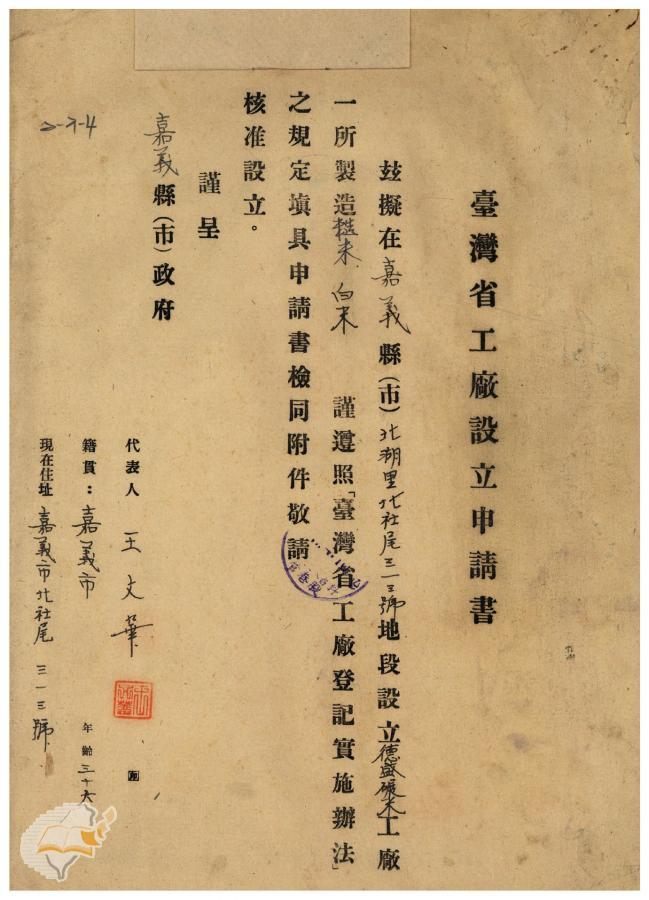 臺灣省工廠設立申請書
玆擬在嘉義縣(市)北湖里北社尾三一三號地段設立德盛碾米工廠
一所製造糙米 白米 謹遵照「臺灣省工廠登記實施辦法」
之規定填具申請書檢同附件敬請
核准設立。
謹呈
嘉義縣(市)政府
代表人 王文華
籍貫:嘉義市 年齡三十六
現在住址 嘉義市北社尾三一三號